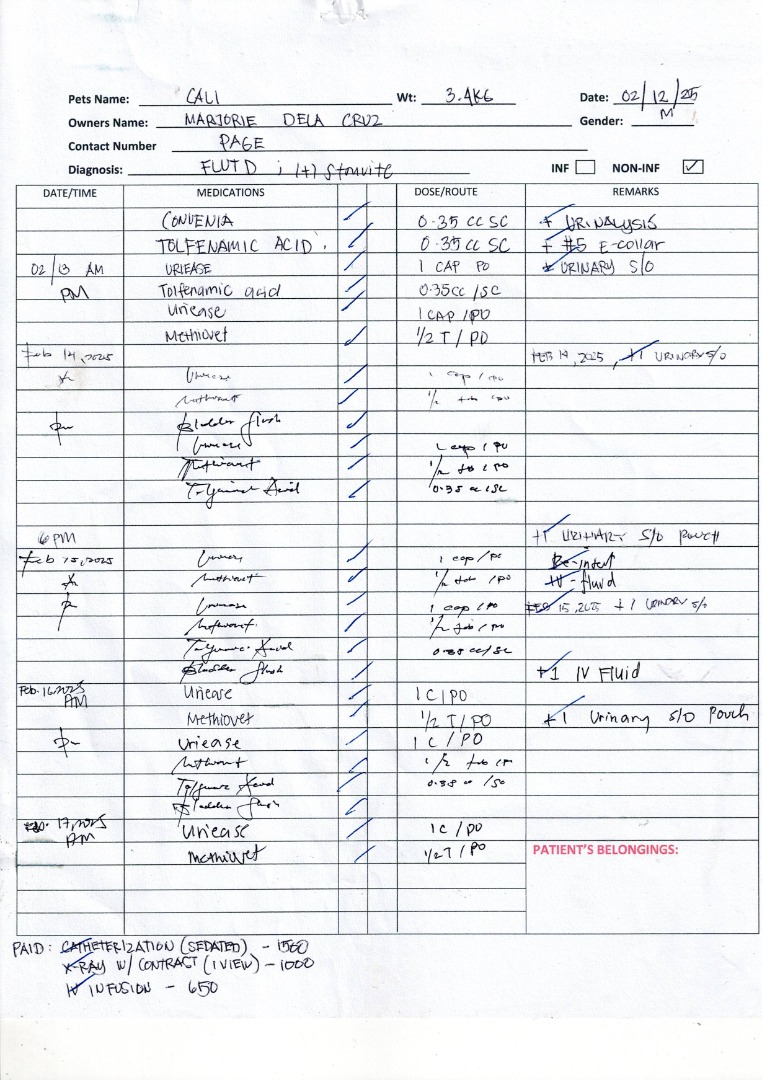 Pets Name: CALI Wt: 3.4KG Date: 02/12/25
Owners Name: MARJORIE DELA CRUZ Gender: M
Contact Number PAGE
Diagnosis: FLUTD ; (+) Struvite INF NON-INF ✓
DATE/TIME MEDICATIONS DOSE/ROUTE REMARKS
CONVENIA 0.35 CC SC + URINALYSIS
TOLFENAMIC ACID. 0.35 CC SC + #5 E-collar
02/13 AM URIEASE 1 CAP PO + URINARY S/O
PM Tolfenamic acid 0.35cc/SC
Uriease 1 CAP/PO
Methiovet 1/2 T/PO
Feb 14, 2025 FEB 14, 2025, +1 URINARY S/O
Uriease 1 cap/PO
Methiovet 1/2 tab/PO
Bladder flush
Uriease 1 cap/PO
Methiovet 1/2 tab/PO
Tolfenamic Acid 0.35 cc/SC
6PM +1 URINARY S/O POUCH
Feb 15, 2025 Uriease 1 cap/PO
Methiovet 1/2 tab/PO IV-fluid
Uriease 1 cap/PO FEB 15, 2025 +1 URINARY S/O
Methiovet 1/2 tab/PO
Tolfenamic Acid 0.35 cc/SC
Bladder flush +1 IV Fluid
Feb. 16, 2025 AM Uriease 1 C/PO
Methiovet 1/2 T/PO +1 Urinary S/O Pouch
Uriease 1 C/PO
Methiovet 1/2 tab/PO
Tolfenamic Acid 0.35 cc/SC
Bladder flush
Feb. 17, 2025 AM Uriease 1C/PO
Methiovet 1/2 T/PO PATIENT'S BELONGINGS:
PAID: CATHETERIZATION (SEDATED) - 1500
X-RAY W/ CONTRACT (1 VIEW) - 1000
IV INFUSION - 650